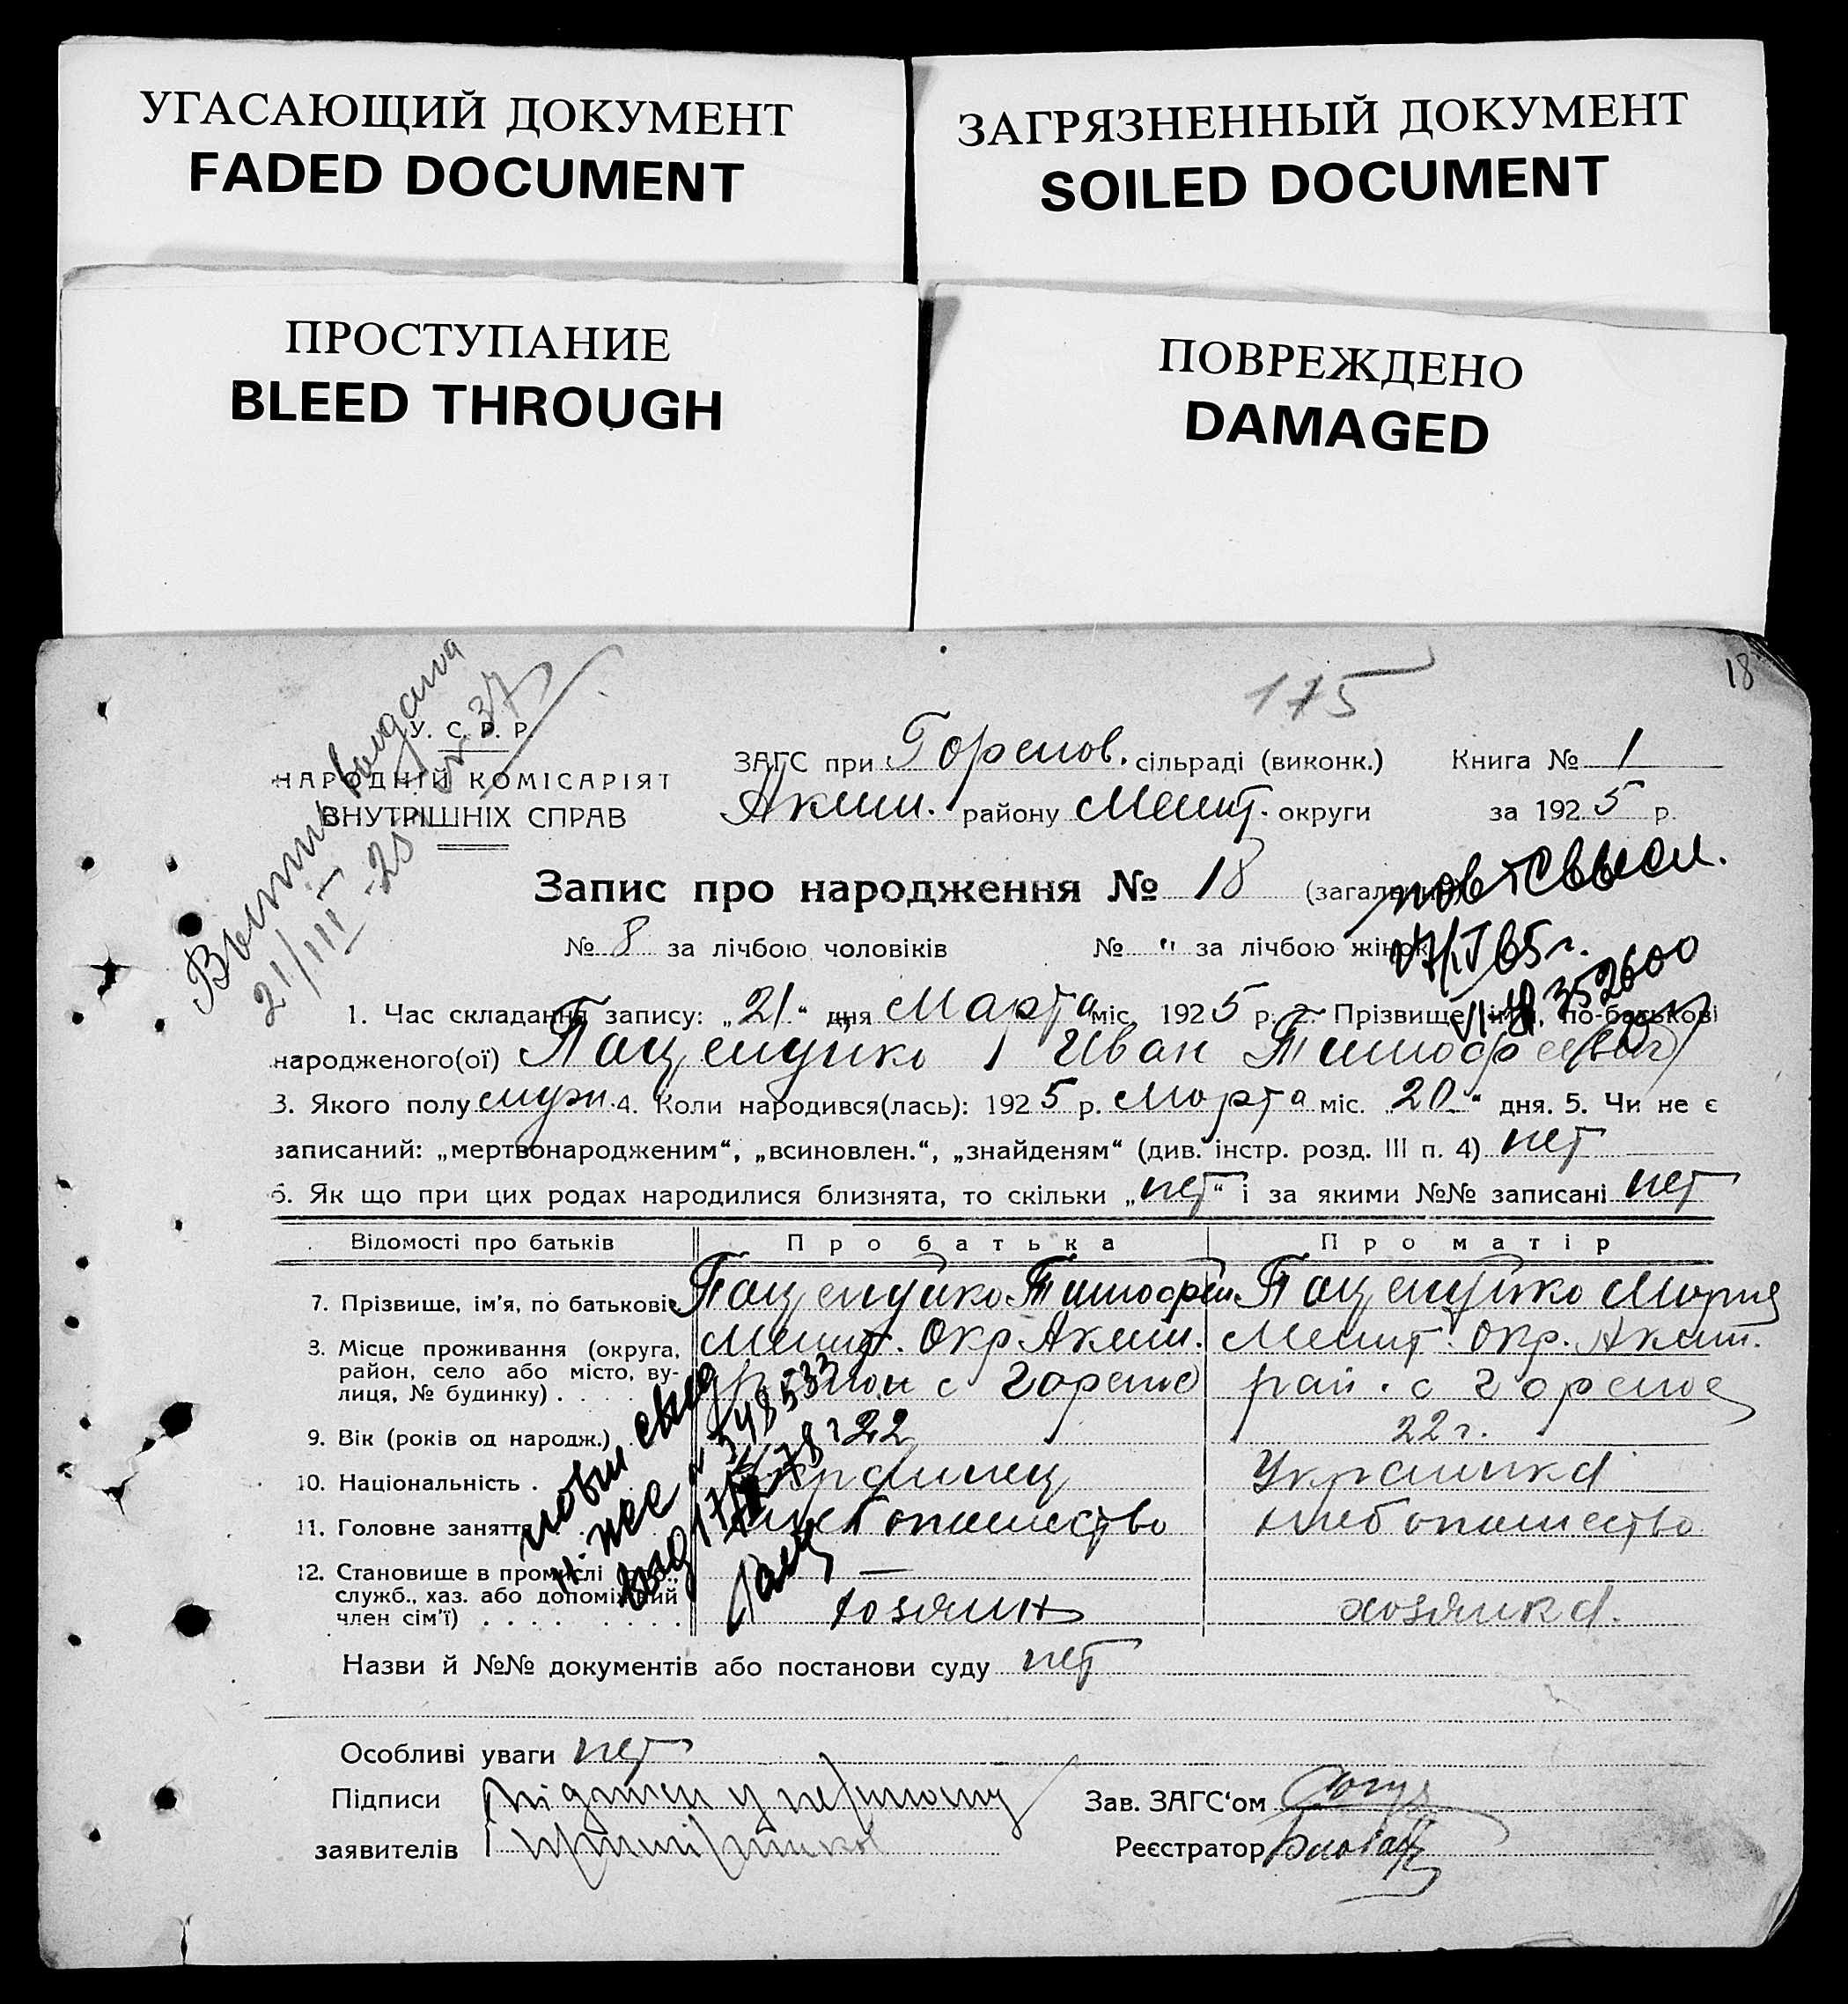 УГАСАЮЩИЙ ДОКУМЕНТ
FADED DOCUMENT
ЗАГРЯЗНЕННЫЙ ДОКУМЕНТ
SOILED DOCUMENT
ПРОСТУПАНИЕ
BLEED THROUGH
ПОВРЕЖДЕНО
DAMAGED
18
175
21/III-25 37
У. С. Р. Р.
НАРОДНІЙ КОМІСАРІЯТ
ВНУТРІШНІХ СПРАВ
ЗАГС при Горелов. сільраді (виконк.) Книга № 1
Аким. району Мелит. округи за 1925 р.
Запис про народження № 18 (загальний)
№ 8 за лічбою чоловіків № " за лічбою жінок
352600
1. Час складання запису: „21“ дня Марта міс. 1925 р. 2. Прізвище, ім'я, по-батькові
народженого(ої) Иван Тимофеевич
3. Якого полу муж. 4. Коли народився(лась): 1925 р. Марта міс. „20“ дня. 5. Чи не є
записаний: „мертвонародженим“, „всиновлен.“, „знайденям“ (див. інстр. розд. III п. 4) нет
6. Як що при цих родах народилися близнята, то скільки „нет“ і за якими №№ записані нет
Відомості про батьків Про батька Про матір
7. Прізвище, ім'я, по батькові Тимофей Мария
8. Місце проживання (округа, район, село або місто, вулиця, № будинку) . . Мелит. Окр Аким. район с Мелит. окр. Аким. рай. с
9. Вік (років од народж.) . 22 22 г.
10. Національність . Украинец Украинка
11. Головне заняття . . . хлебопашество хлебопашество
12. Становище в промислі служб., хаз. або допоміжний член сім'ї) . . . . — хозяин хозяйка.
Назви й №№ документів або постанови суду нет
Особливі уваги нет
Підписи
заявителів
Зав. ЗАГС'ом
Реєстратор